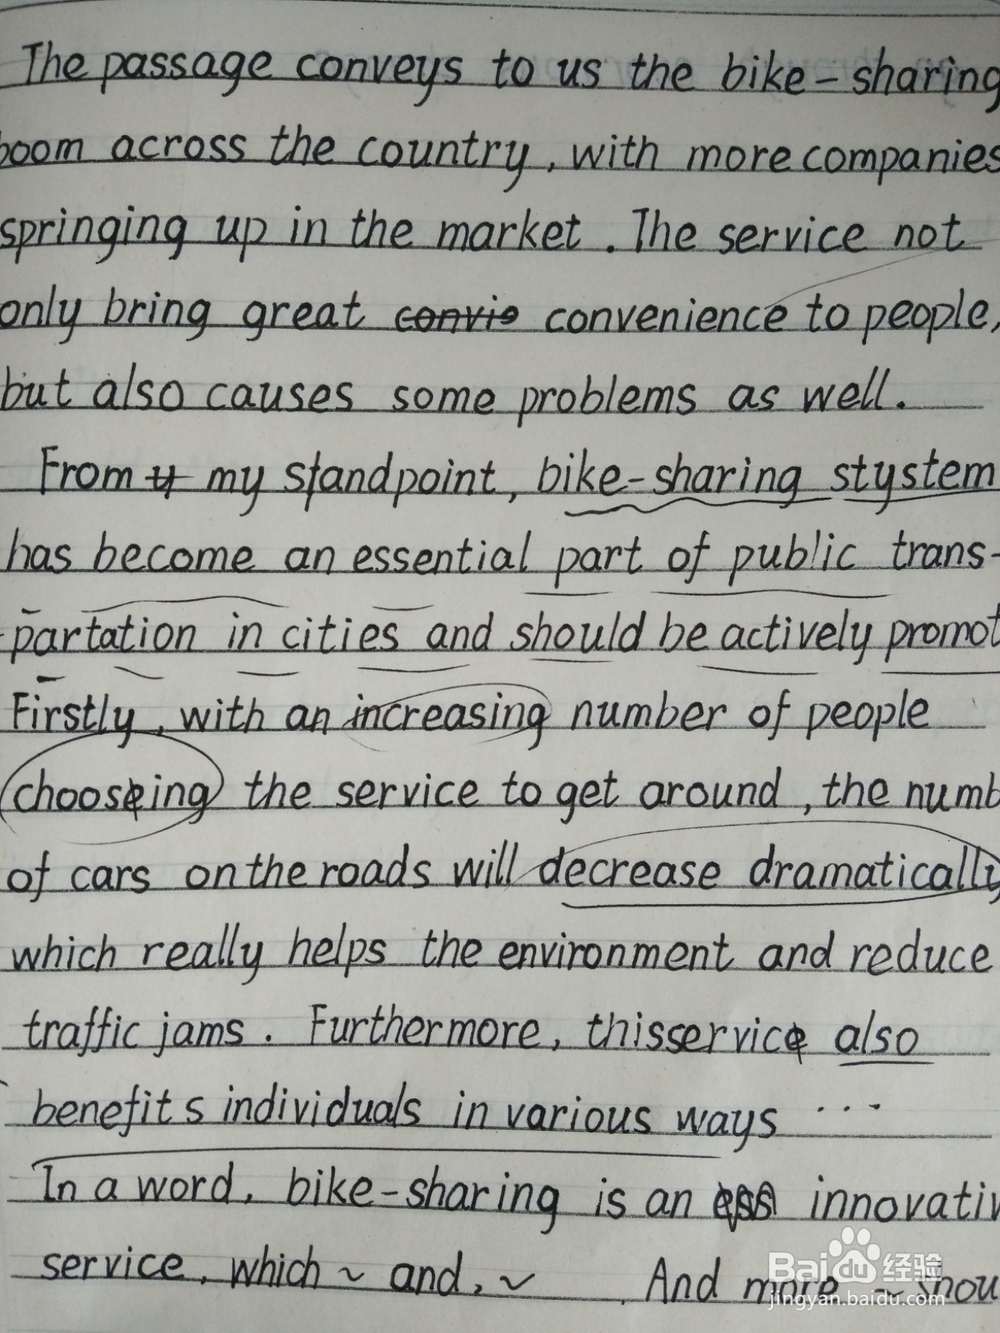 The passage conveys to us the bike-sharing
boom across the country, with more companies
springing up in the market. The service not
only bring great convie convenience to people,
but also causes some problems as well.
From my standpoint, bike-sharing stystem
has become an essential part of public trans-
partation in cities and should be actively promot
Firstly, with an increasing number of people
choosing the service to get around, the numb
of cars on the roads will decrease dramatically
which really helps the environment and reduce
traffic jams. Furthermore, this service also
benefits individuals in various ways ...
In a word, bike-sharing is an innovativ
service, which ~ and, ~ And more ~ shou
Baidu 经验
jingyan.baidu.com